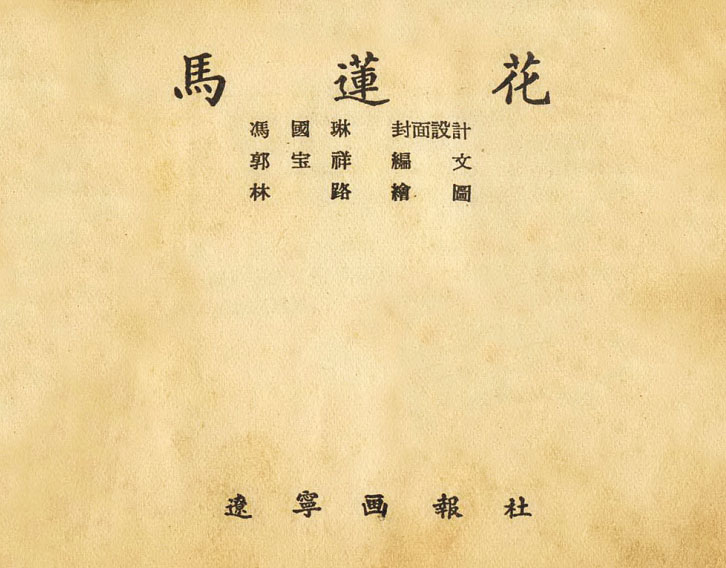 馬蓮花
馮國琳 封面設計
郭宝祥 編文
林路 繪圖
遼寧画報社